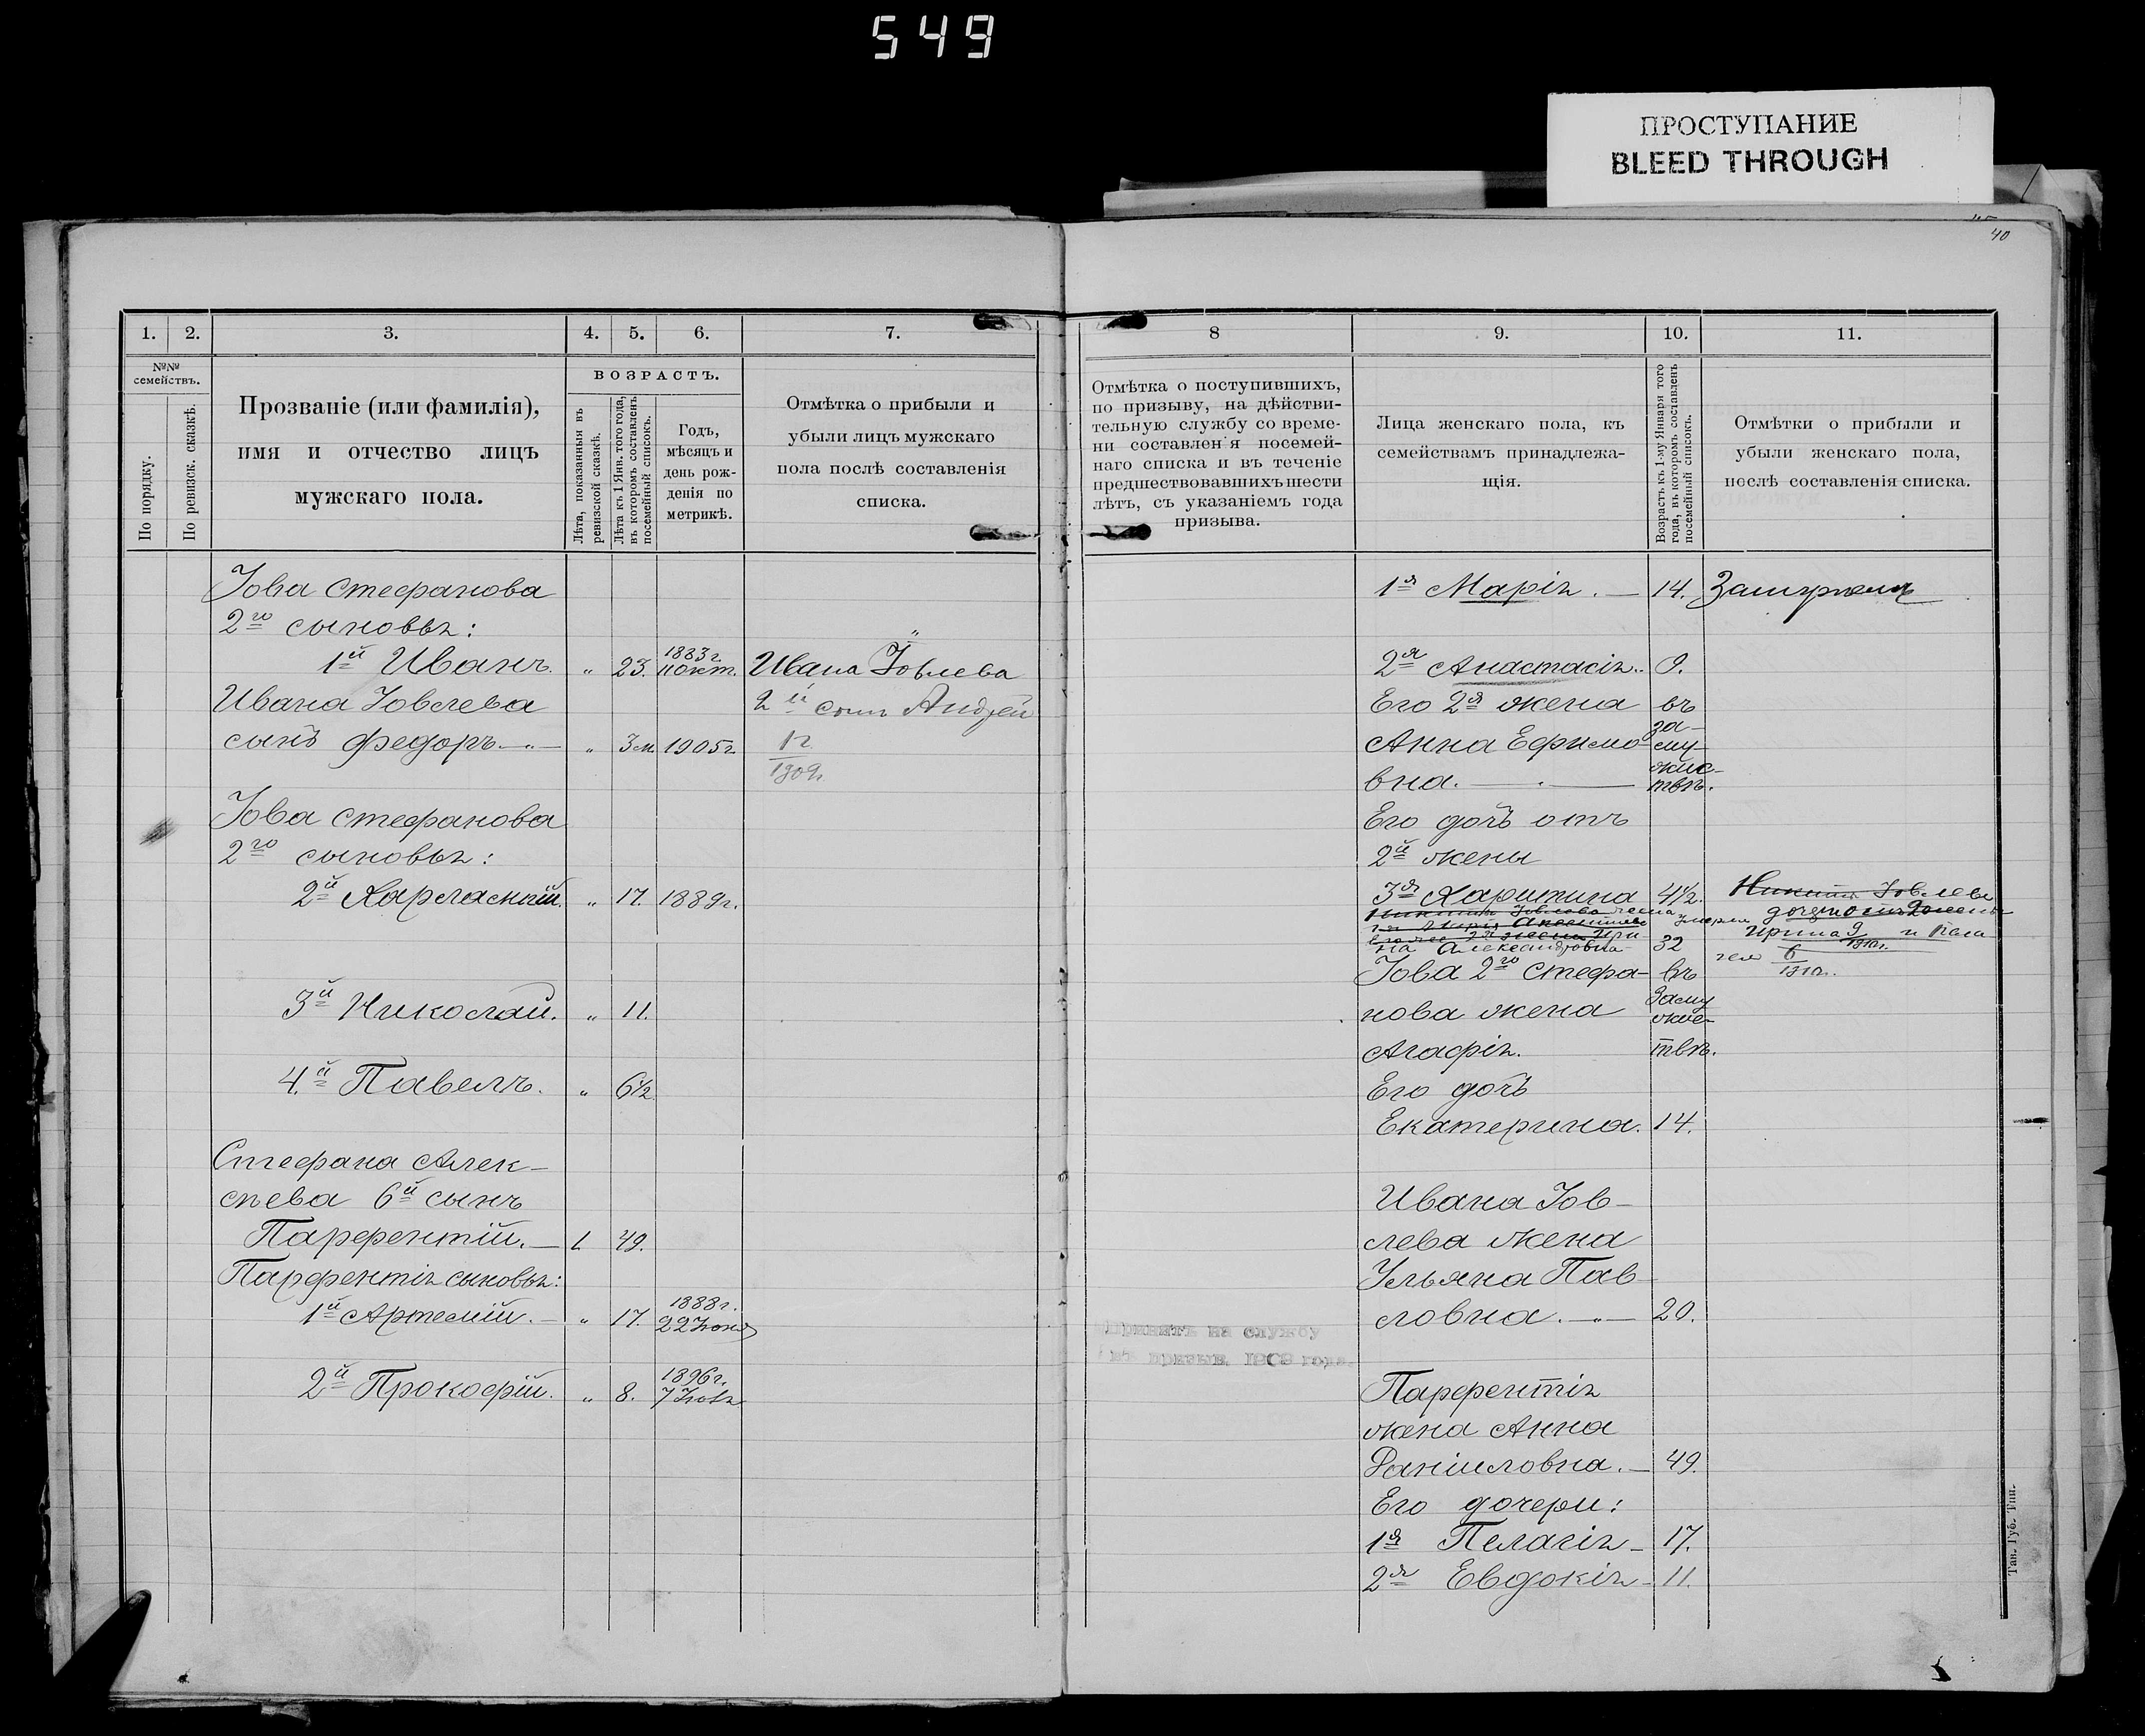 549
ПРОСТУПАНИЕ
BLEED THROUGH
40
1. 2. 3. 4. 5. 6. 7.
№№ семействъ.
По порядку.
По ревизск. сказкѣ.
Прозваніе (или фамилія),
имя и отчество лицъ
мужскаго пола.
ВОЗРАСТЪ.
Лѣта, показанныя въ
ревизской сказкѣ.
Лѣта къ 1 Янв. того года,
въ которомъ составленъ
посемейный списокъ.
Годъ,
мѣсяцъ и
день рож-
денія по
метрикѣ.
Отмѣтка о прибыли и
убыли лицъ мужскаго
пола послѣ составленія
списка.
Іова Стефанова
2го сыновья:
1й Иванъ. " 23. 1883г. 11 окт. Ивана Іовлева
Ивана Іовлева 2й сынъ Андрей
сынъ Федоръ. " 3м. 1905г. 1г.
1909г.
Іова Стефанова
2го сыновья:
2й Харлампій. " 17. 1889г.
3й Николай. " 11.
4.й Павелъ. " 6½
Стефана Алек-
сѣева 6й сынъ
Парфентій. 1 49.
Парфентія сыновья:
1й Артемій. " 17. 1888г. 22 Іюня
2й Прокофій. " 8. 1896г. 7 Іюля
8 9. 10. 11.
Отмѣтка о поступившихъ,
по призыву, на дѣйстви-
тельную службу со време-
ни составленія посемей-
наго списка и въ теченіе
предшествовавшихъ шести
лѣтъ, съ указаніемъ года
призыва.
Лица женскаго пола, къ
семействамъ принадлежа-
щія.
Возрастъ къ 1-му Января того
года, въ которомъ составленъ
посемейный списокъ.
Отмѣтки о прибыли и
убыли женскаго пола,
послѣ составленія списка.
1я Марія. 14. Замужемъ
2я Анастасія. 9.
Его 2я жена въ
Анна Ефимо- за-
му-
вна. жес-
твѣ.
Его дочь отъ
2й жены
3я Харитина 4½. Никиты Іовлева
Никиты Іовлева жена
жена Ири- Ирина
на Александровна 32 1910г.
Іова 2го Стефа- въ 6
1910г.
нова жена Заму
жес-
Агафія. твѣ.
Его дочь
Екатерина. 14.
Ивана Іов-
лева жена
Ульяна Пав-
ловна. 20.
Принятъ на службу
въ призыв. 1909 года.
Парфентія
жена Анна
Даниловна. 49.
Его дочери:
1я Пелагія 17.
2я Евдокія 11.
Тав. Губ. Тип.